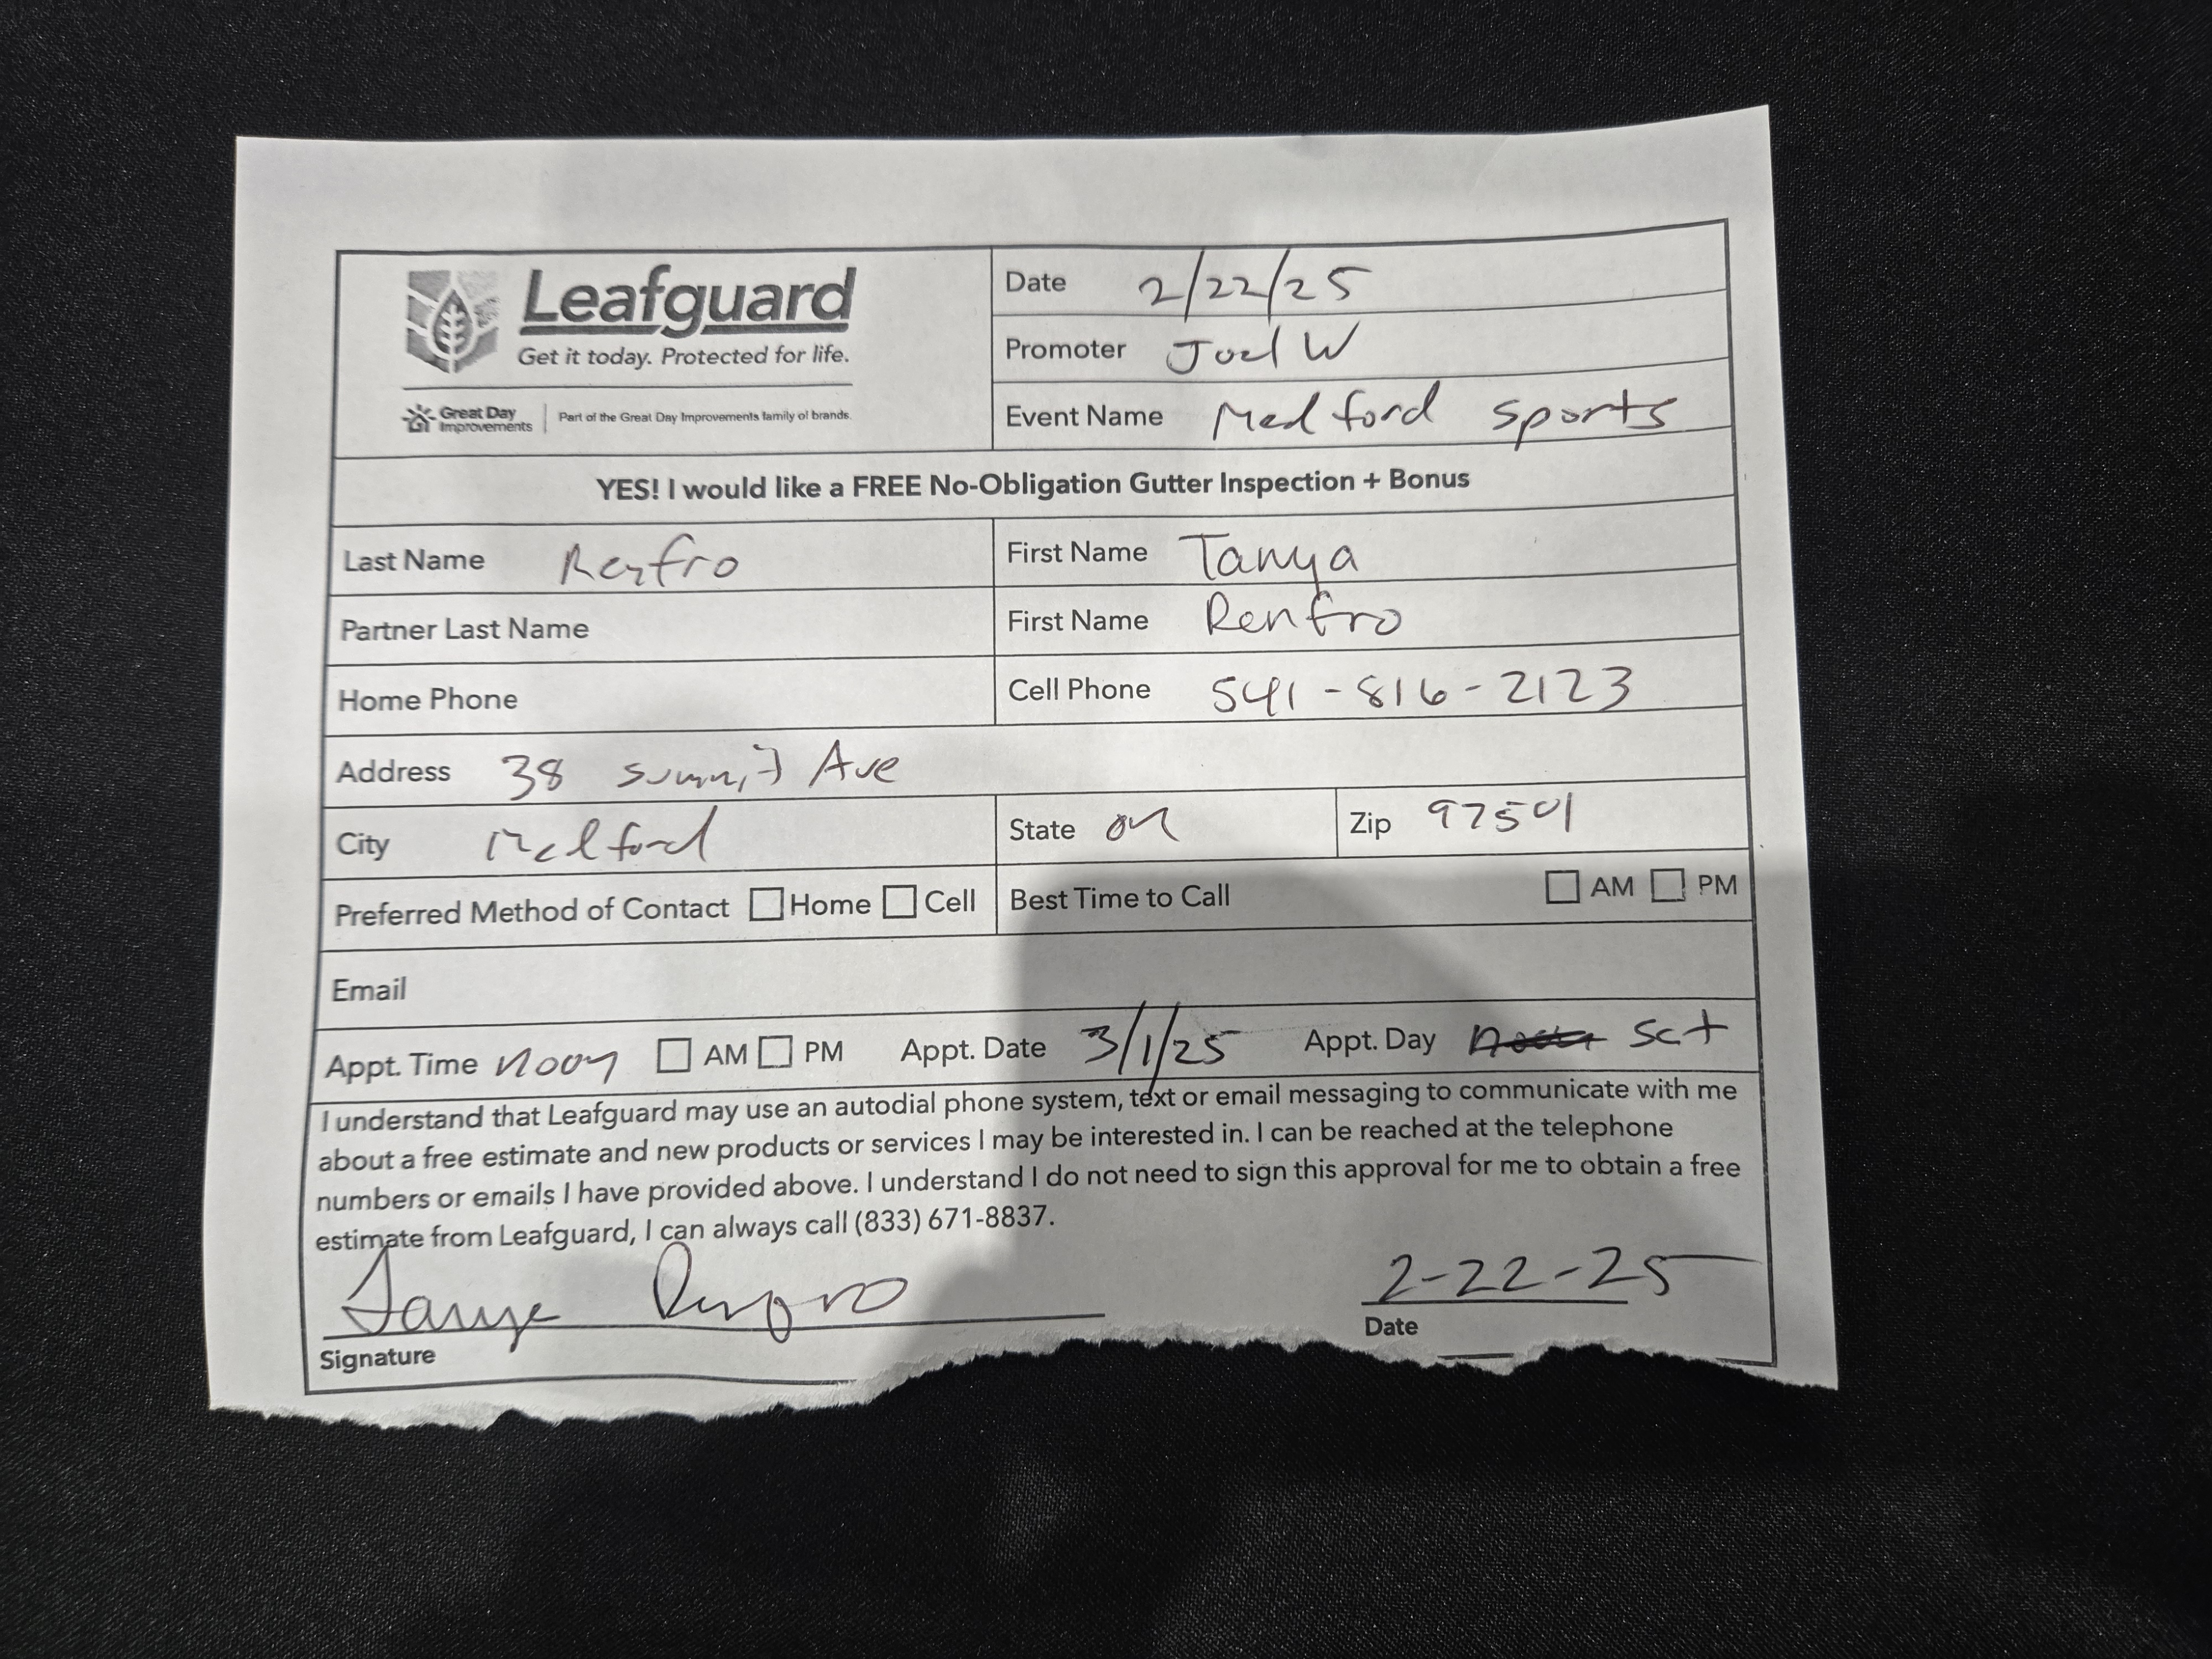 Leafguard
Get it today. Protected for life.
Great Day Improvements | Part of the Great Day Improvements family of brands.
Date 2/22/25
Promoter Joel W
Event Name Medford sports
YES! I would like a FREE No-Obligation Gutter Inspection + Bonus
Last Name Renfro First Name Tanya
Partner Last Name First Name Renfro
Home Phone Cell Phone 541-816-2123
Address 38 summit Ave
City Medford State OR Zip 97501
Preferred Method of Contact Home Cell Best Time to Call AM PM
Email
Appt. Time noon AM PM Appt. Date 3/1/25 Appt. Day sat
I understand that Leafguard may use an autodial phone system, text or email messaging to communicate with me
about a free estimate and new products or services I may be interested in. I can be reached at the telephone
numbers or emails I have provided above. I understand I do not need to sign this approval for me to obtain a free
estimate from Leafguard, I can always call (833) 671-8837.
Tanya Renfro 2-22-25
Signature Date